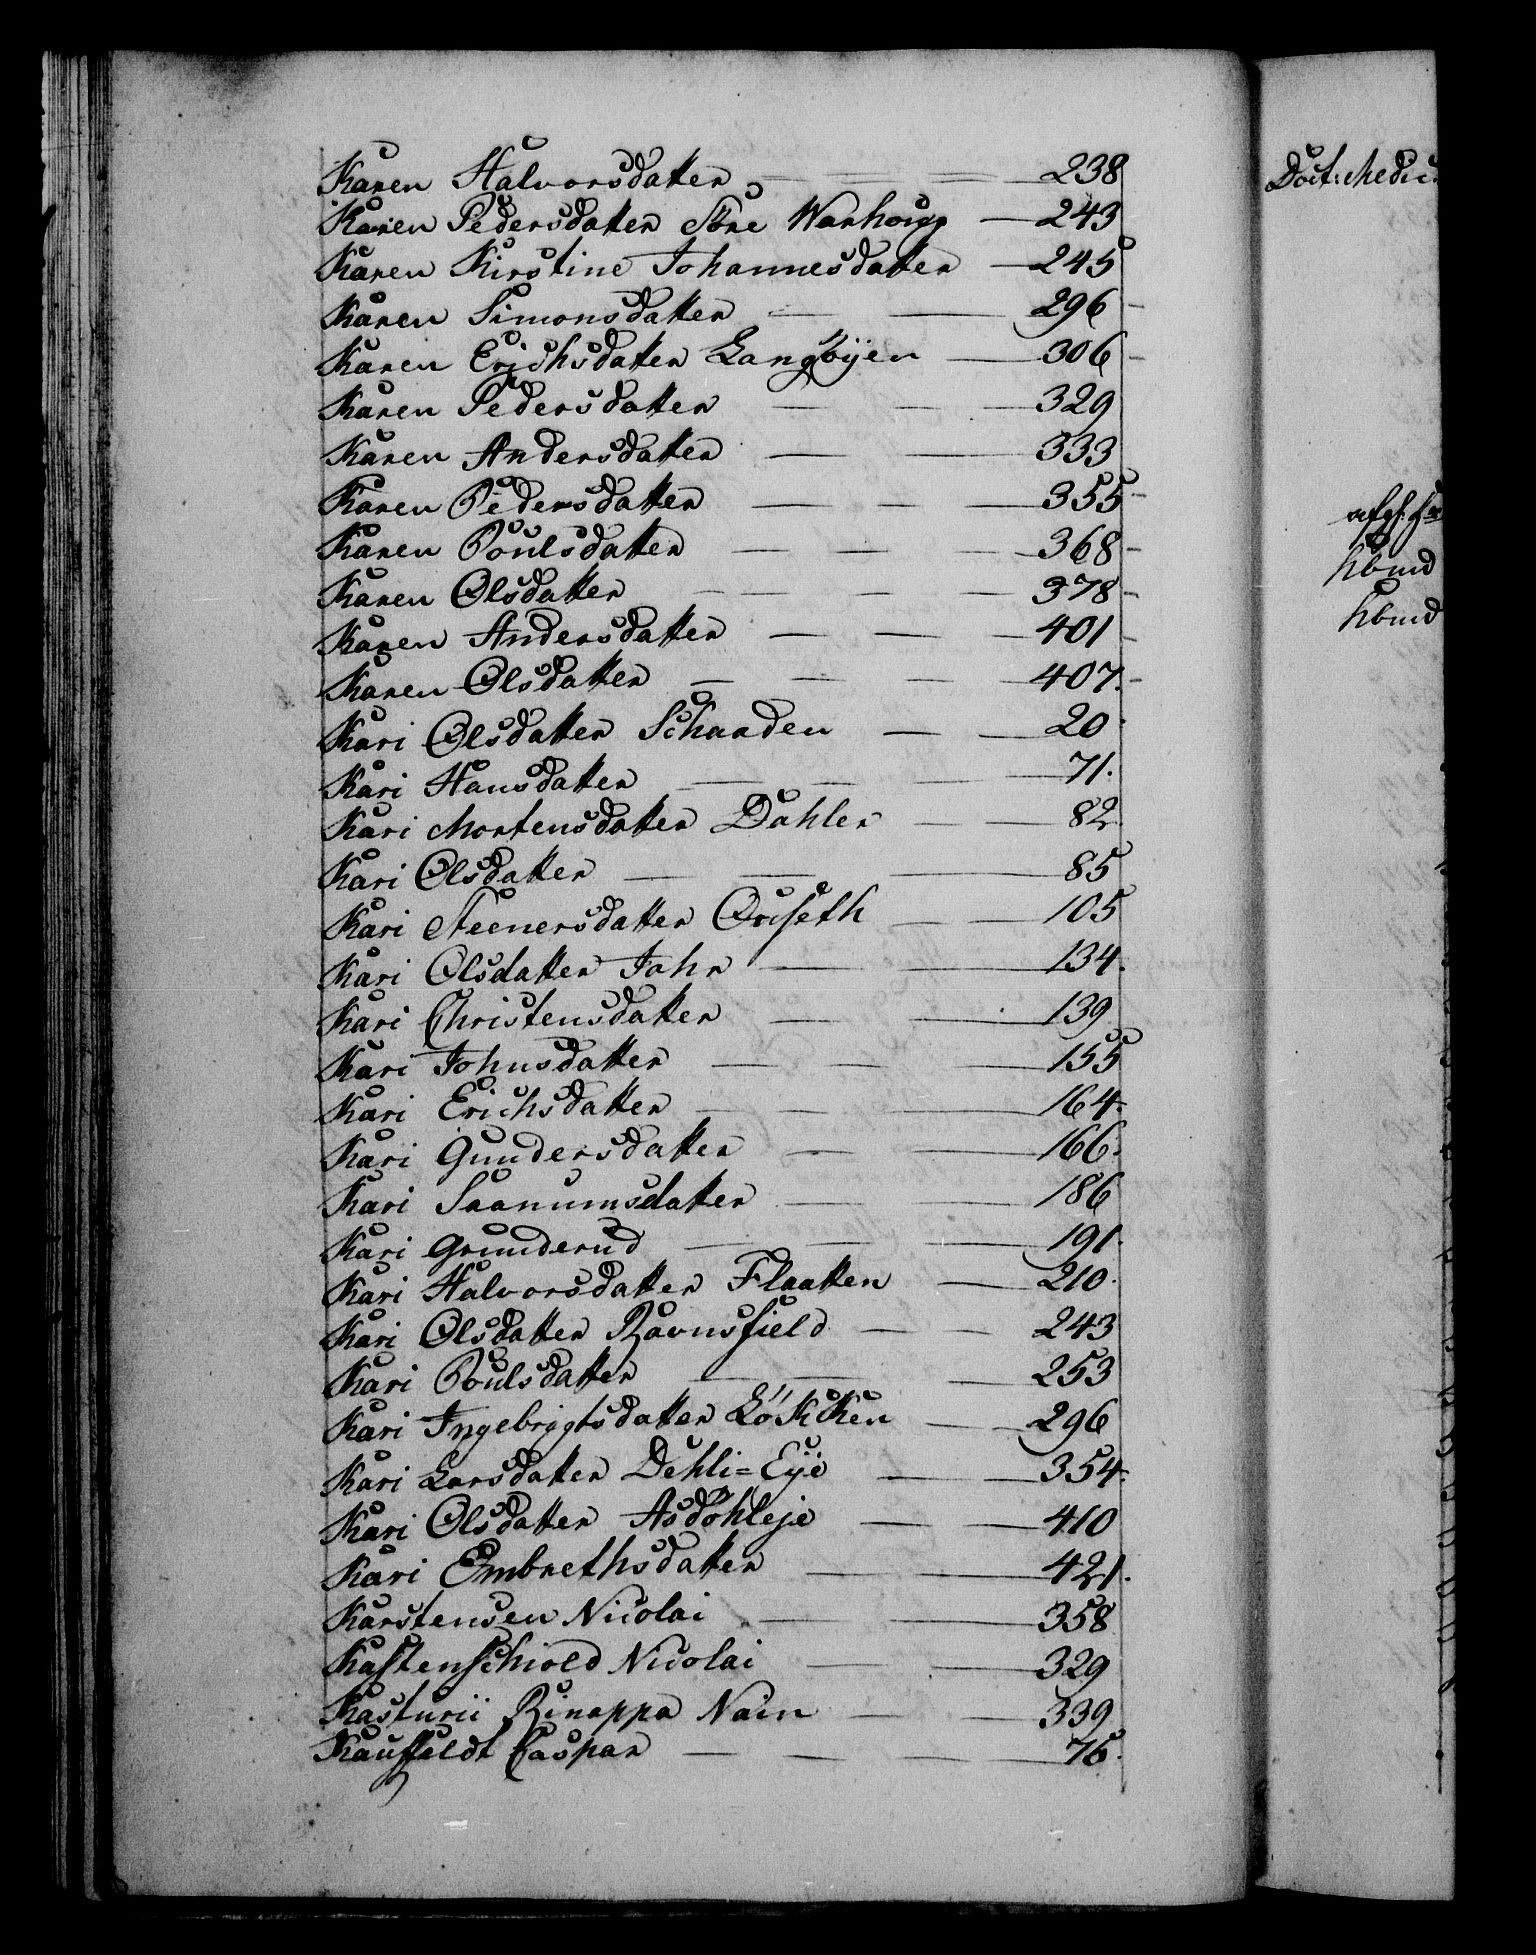 Karen Halvorsdatter 238
Karen Pedersdatter Störe Warhoug 243
Karen Kirstine Johannesdatter 245
Karen Simonsdatter 296
Karen Erichsdatter Langöÿen 306
Karen Pedersdatter 329
Karen Andersdatter 333
Karen Pedersdatter 355
Karen Poulsdatter 368
Karen Olsdatter 378
Karen Andersdatter 401
Karen Olsdatter 407.
Kari Olsdatter Schaaden 20
Kari Hansdatter 71.
Kari Mortensdatter Dahler 82
Kari Olsdatter 85
Kari Steenersdatter 105
Kari Olsdatter Jahr 134.
Kari Christensdatter 139
Kari Johnsdatter 155
Kari Erichsdatter 164.
Kari Gundersdatter 166.
Kari Saanumsdatter 186
Kari Grunderud 191.
Kari Halvorsdatter Flaatten 210.
Kari Olsdatter Ravnsfield 243
Kari Poulsdatter 253
Kari Ingebrigtsdatter Lökken 296
Kari Larsdatter Dehli=Eÿe 354.
Kari Olsdatter Asdöhleje 410
Kari Embrethsdatter 421.
Karstensen Nicolai 358
Kastenschiold Nicolai 329
Kasturii Rinappa Nain 339
Kauffeldt Caspar 76.
Doct: Medic:
hbmd
hbmd